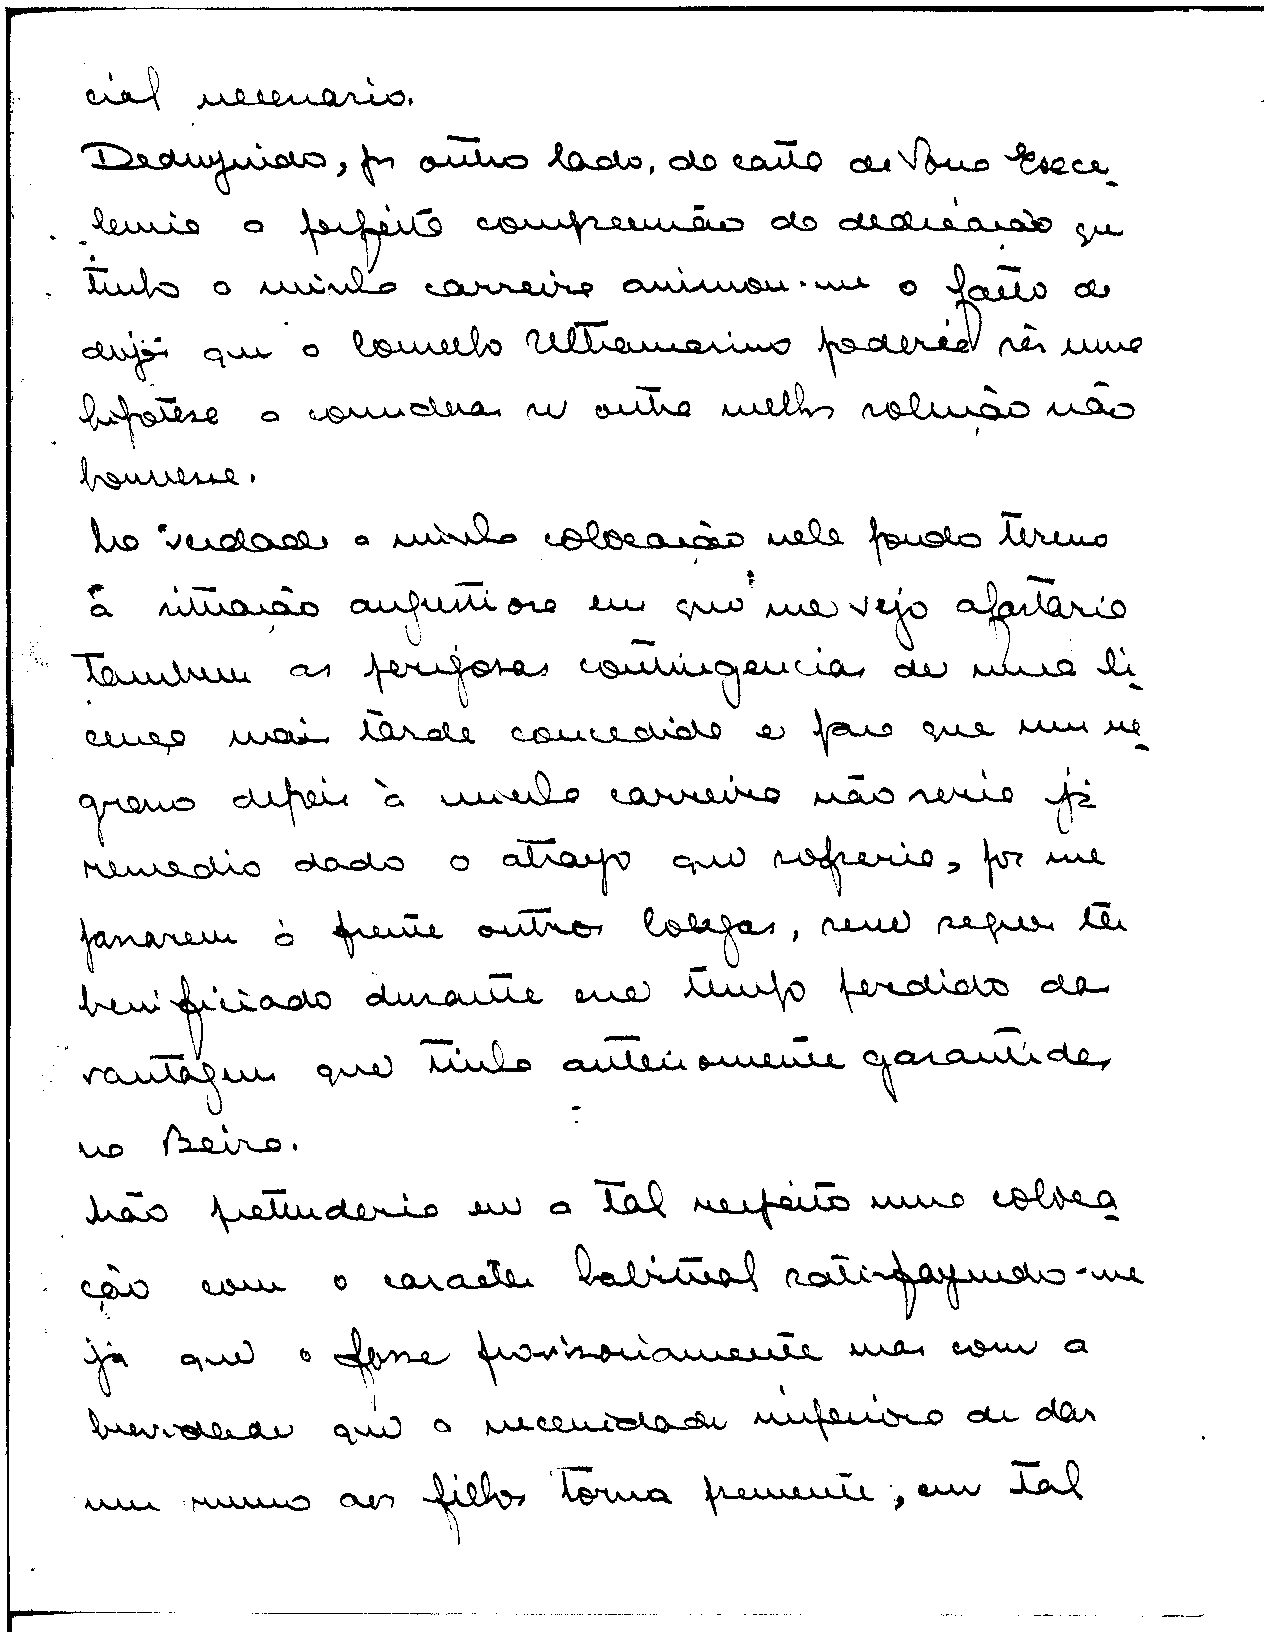 cial necessario.
Deduzindo, por outro lado, da carta de Vossa Exce-
lencia a perfeita compreensão da dedicação que
tinha a minha carreira animou-me o facto de
dizer que o Conselho Ultramarino poderia ser uma
hipotese a considerar se outra melhor solução não
houvesse.
Na verdade a minha colocação nele pondo termo
à situação angustiosa em que me vejo afastaria
tambem as perigosas contingencias de uma li-
cença mais tarde concedida e para que num re-
gresso depois à minha carreira não seria já
remedio dado o atrazo que sofreria, por me
passarem à frente outros Colegas, sem sequer ter
benificiado durante esse tempo perdido da
vantagem que tinha anteriormente garantida,
na Beira.
Não pretenderia eu a tal respeito uma coloca-
ção com o caracter habitual satisfazendo-me
já que o fosse provisoriamente mas com a
brevidade que a necessidade imperiosa de dar
um rumo aos filhos torna premente, em tal